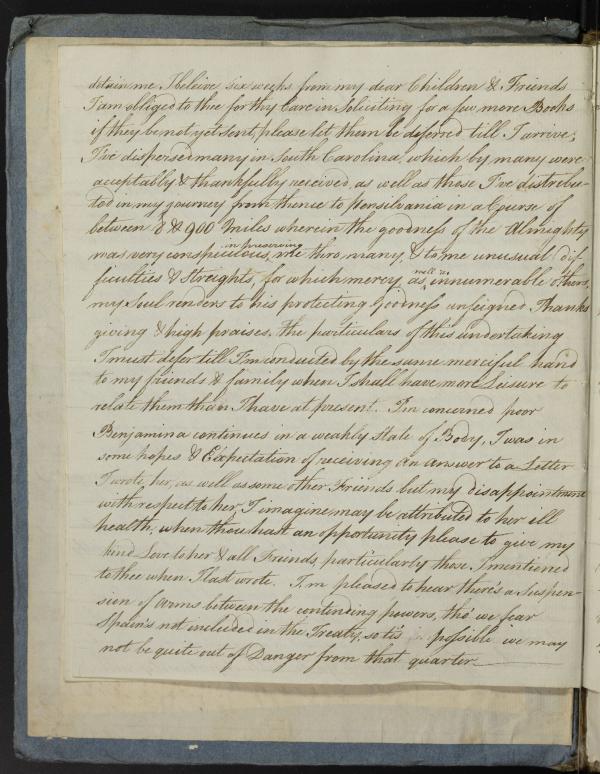 detain me I beleive six weeks from my dear Children & Friends
I am obliged to thee for thy Care in Soliciting for a few more Books
if they be not yet sent, please let them be deferred till I arrive,
I've dispersed many in South Carolina, which by many were
acceptably & thankfully received, as well as those I've distribu-
ted in my journey from thence to Pensilvania in a Course of
between 8 & 900 Miles wherein the goodness of the Almighty
was very conspicuous in preserving me thro many, & to me unusual dif-
ficulties & Streights, for which mercy as well as innumerable others,
my Soul renders to his protecting Goodness unfeigned Thanks
giving & high praises, the particulars of this undertaking
I must defer till I'm conducted by the same merciful hand
to my friends & family when I shall have more Leisure to
relate them than I have at present. I'm concerned poor
Benjamina continues in a weakly State of Body, I was in
some hopes & Expectation of receiving an answer to a Letter
I wrote her, as well as some other Friends but my disappointment
with respect to her, I imagine may be attributed to her ill
health, when thou hast an opportunity please to give my
kind Love to her & all Friends, particularly those I mentioned
to thee when I last wrote. I'm pleased to hear there's a Suspen-
sion of arms between the contending powers, tho' we fear
Spain's not included in the Treaty, so tis possible we may
not be quite out of Danger from that quarter